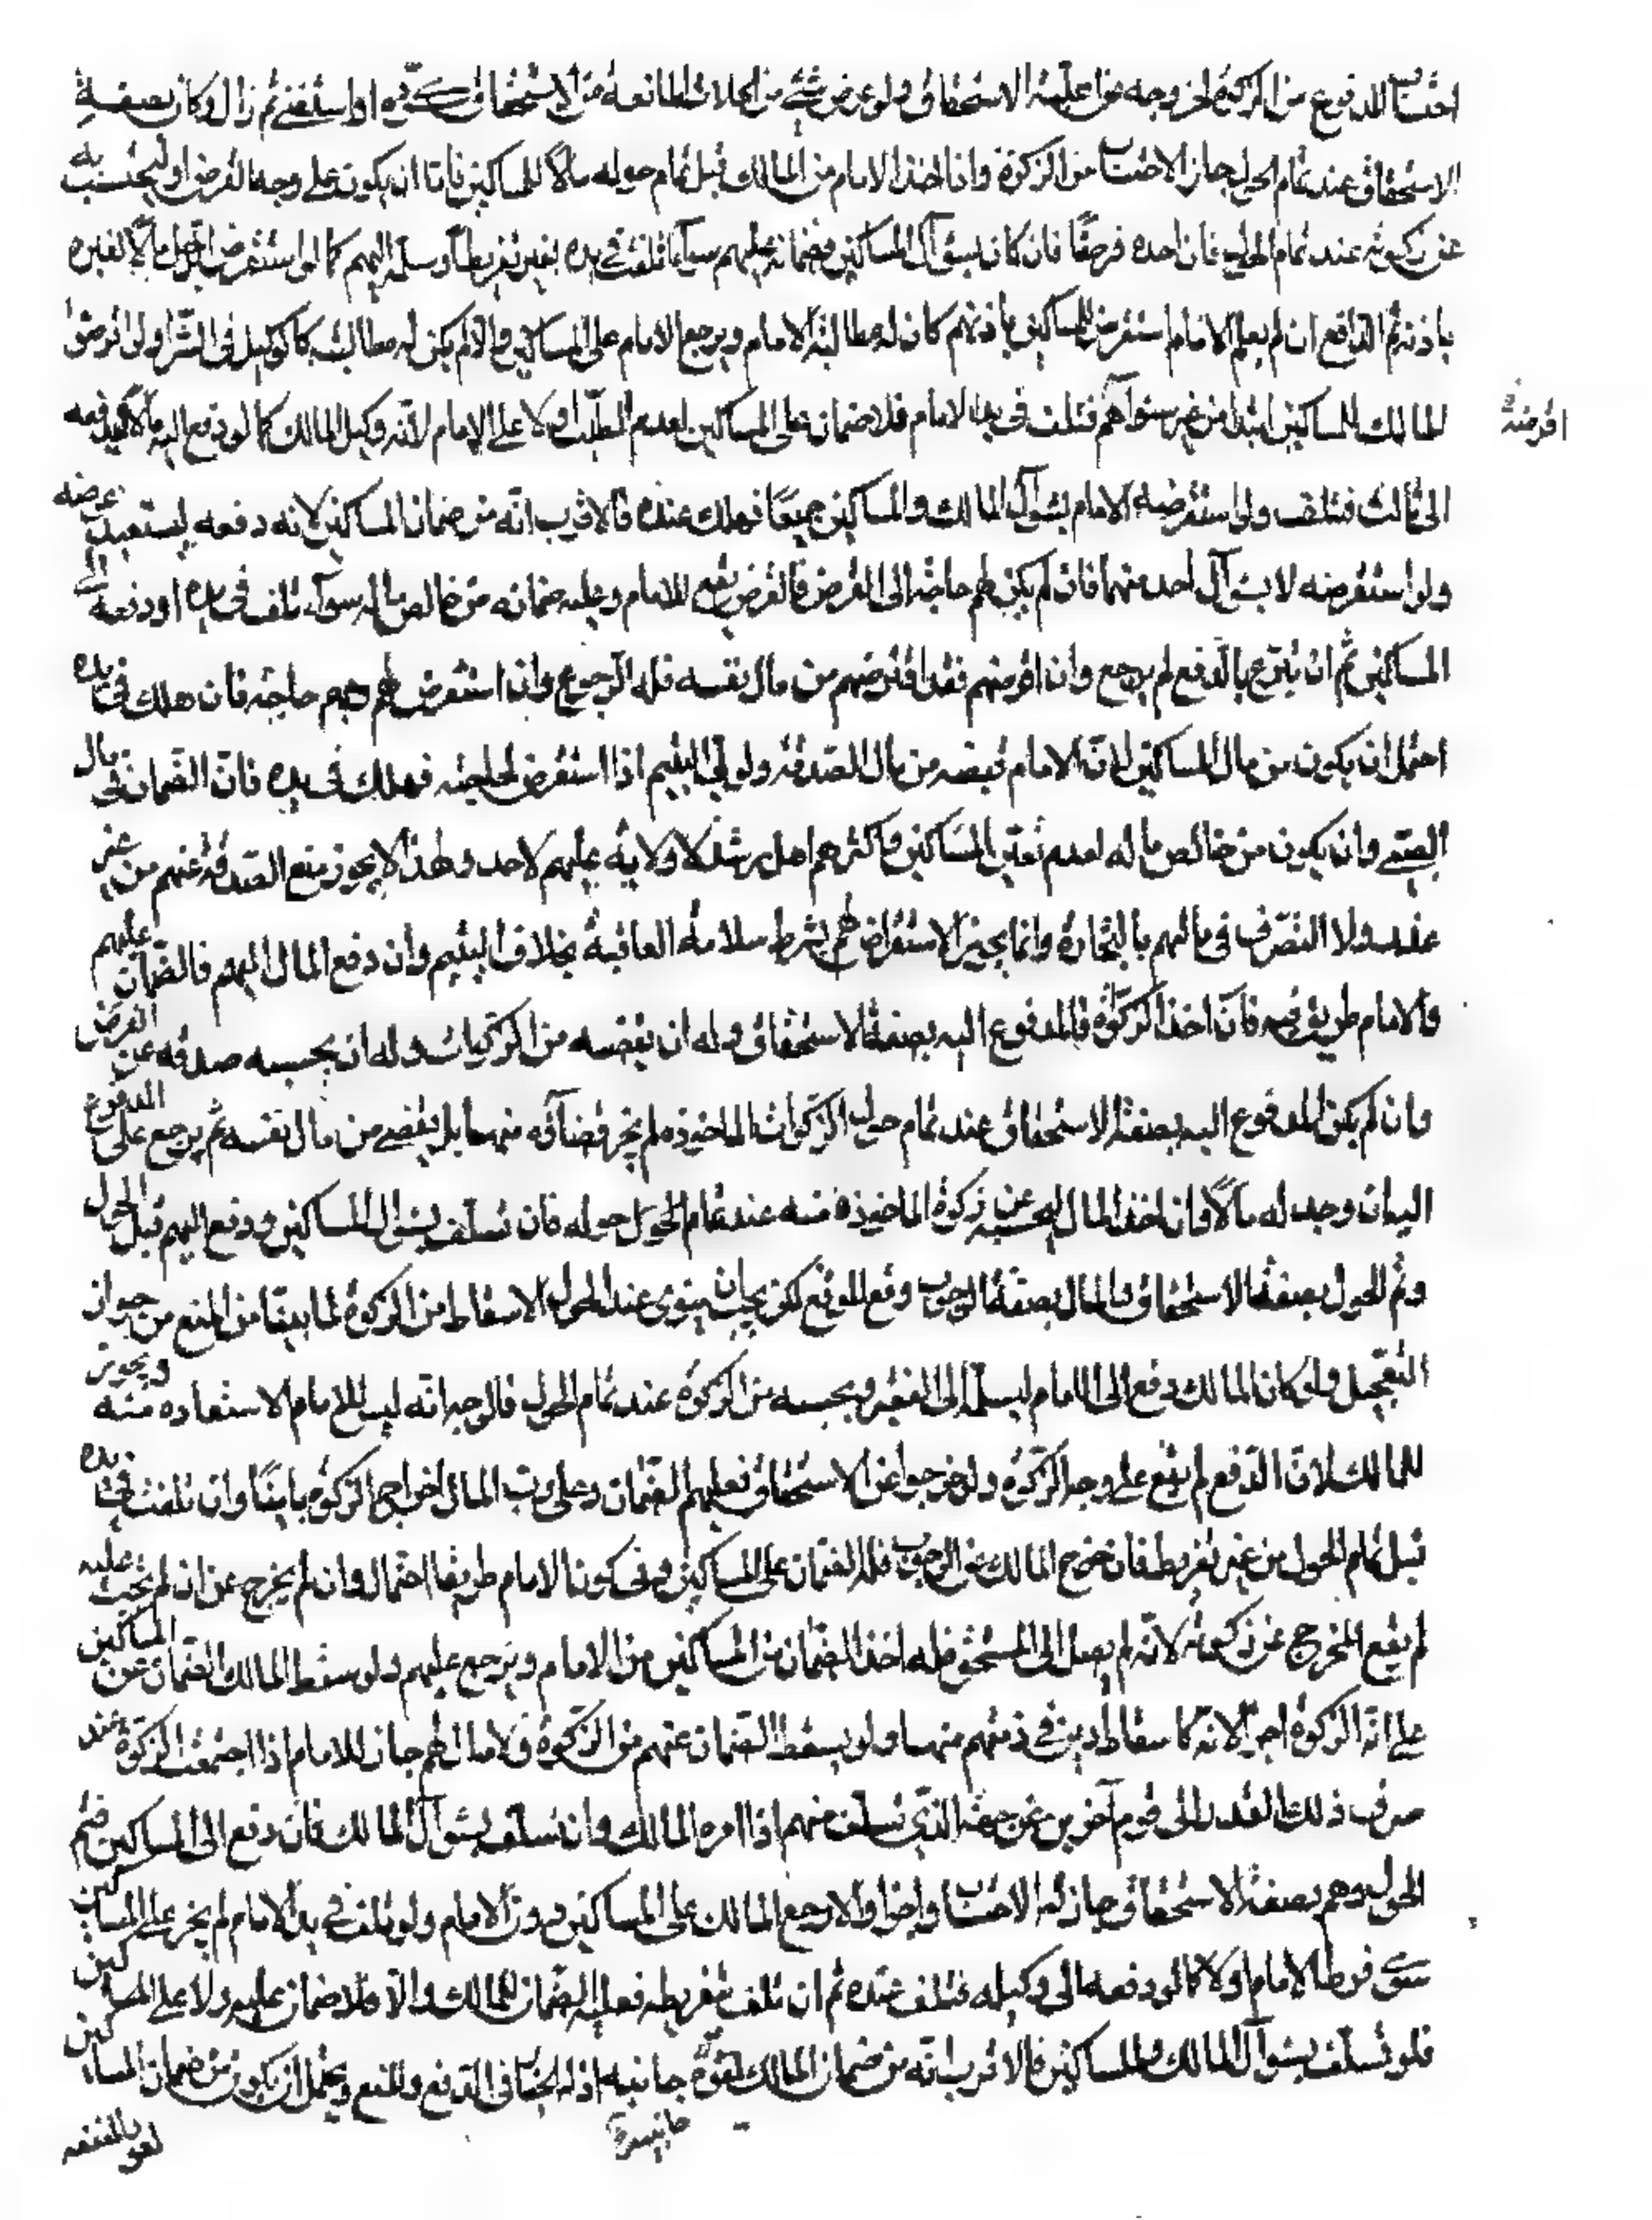 احتساب المدفوع من الزكوة لخروجه عن اهلية الاستحقاق ولو عرض شئ من الحالات المانعة من الاستحقاق كردة او استغنى ثم زال وكان بصفة
الاستحقاق عند تمام الحول جاز الاحتساب من الزكوة واذا اخذ الامام من المالك قبل تمام حوله مالا للمساكين فاما ان يكون على وجه القرض او ليحتسب به
عن زكوته عند تمام الحول فان اخذه قرضا فان كان بسؤال المساكين فضمانه عليهم سواء تلفت في يده بغير تفريط او سلمه اليهم كما لو استقرض الرجل مالا لغيره
باذنه ثم الدافع ان لم يعلم الامام استقرض للمساكين باذنهم كان له مطالبة الامام ويرجع الامام على المساكين والا لم يكن له مطالبته كالوكيل في الشراء ولو اقرضه
المالك للمساكين ابتداء من غير سؤالهم فتلف في يد الامام فلا ضمان على المساكين لعدم الطلب ولا على الامام لانه وكيل المالك كما لو دفع اليه مالا ليدفعه
اقرضه
الى ثالث فتلف ولو استقرضه الامام بسؤال المالك والمساكين جميعا فهلك عنده فالاقرب انه من ضمان المساكين لانه دفعه ليستعيد عوضه
ولو استقرضه لا بسؤال احد منهما فان لم يكن لهم حاجة الى القرض فالقرض يقع للامام وعليه ضمانه من خالص ماله سواء تلف في يده او دفعه الى
المساكين ثم ان تبرع بالدفع لم يرجع وان اقرضهم فقد اقرضهم من مال نفسه فله الرجوع وان استقرض لهم وبهم حاجة فان هلك في يده
احتمل ان يكون من مال المساكين لان الامام قبضه من مال الصدقة ولولي اليتيم اذا استقرض لحاجته فهلك في يده فان الضمان في مال
الصبي وان يكون من خالص ماله لعدم تعين المساكين فاكثرهم اهل رشد لا ولاية عليهم لاحد ولهذا لا يجوز منع الصدقة عنهم من غير
عذر ولا التصرف في مالهم بالتجارة وانما يجوز الاستقراض لهم بشرط سلامة العاقبة بخلاف اليتيم وان دفع المال اليهم فالضمان عليهم
والامام طريق فيه فان اخذ الزكوة فالمدفوع اليه بصفة الاستحقاق وله ان يقضيه من الزكوات وله ان يحسبه صدقه عن القرض
وان لم يكن المدفوع اليه بصفة الاستحقاق عند تمام حول الزكوات الماخوذة لم يجز قضاؤه منها بل يقضي من مال نفسه ثم يرجع على المدفوع
اليه ان وجد له مالا فان اخذ المال ليحسبه عن زكوة الماخوذة منه عند تمام الحول حوله فان تسلف بسؤال المساكين ودفع اليهم قبل الحول
وتم الحول بصفة الاستحقاق والمال بصفة الوجوب وقع الموقع لكن يجب ان ينوى عند الحول الاسقاط من الزكوة لما بينا من المنع من جواز
التعجيل ولو كان المالك دفع الى الامام ليسلمه الى الفقير ويحسبه من الزكوة عند تمام الحول فالوجه انه ليس للامام الاستعاده منه ويجوز
للمالك لان الدفع لم يقع على وجه الزكوة ولو خرجوا عن الاستحقاق فعليهم الضمان وعلى رب المال اخراج الزكوة ثانيا وان تلفت في يده
قبل تمام الحول من غير تفريط فان خرج المالك عن الوجوب فله الضمان على المساكين وفي كون الامام طريقا احتمال وان لم يخرج عن ان تجب عليه
لم يقع المخرج عن زكوته لانه لم يصل الى المستحق فله اخذ الضمان من المساكين من الامام ويرجع عليهم ولو سقط المالك الضمان عن المساكين
على انه الزكوة اجزء لانه كاسقاط دين في ذمتهم منها ولو لم يسقط الضمان عنهم من الزكوة ولا مال لهم جاز للامام اذا اجتمعت الزكوة عنده
صرف ذلك القدر الى قوم آخرين عن جهة الذي تسلف منهم اذا امره المالك وان تسلف بسؤال المالك فان دفع الى المساكين فتم
الحول وهم بصفة الاستحقاق جاز له الاحتساب واجزا والا رجع المالك على المساكين دون الامام ولو تلف في يد الامام لم يجز على المساكين
سواء فرط الامام او لا كما لو دفعه الى وكيله فتلف عنده ثم ان تلف بتفريطه فعليه الضمان للمالك والا فلا ضمان عليه ولا على المساكين
فلو تسلف بسؤال المالك والمساكين فالاقرب انه من ضمان المالك لقوة جانبه اذ له الخيار في الدفع والمنع ويحتمل ان يكون من ضمان المساكين